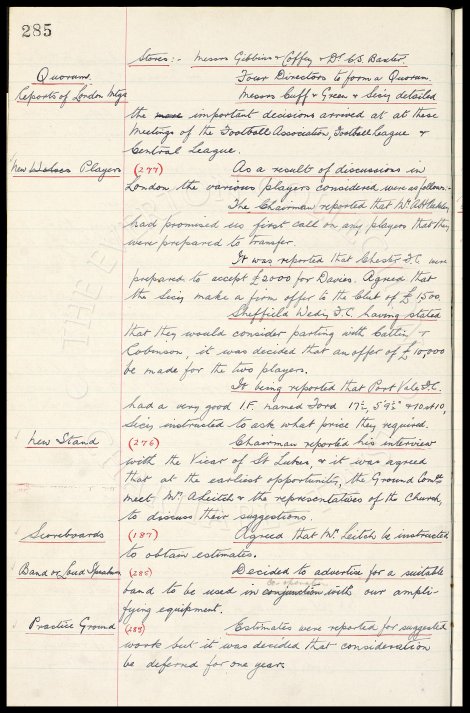 285
Stores:- Messrs Gibbins & Coffey & Dr. C.S. Baxter.
Quorum. Four Directors to form a Quorum.
Reports of London Mtgs Messrs Cuff & Green & Secy detailed
the important decisions arrived at at these
Meetings of the Football Association, Football League &
Central League.
New Players (277) As a result of discussions in
London the various players considered were as follows:-
The Chairman reported that Mr.
had promised us first call on any players that they
were prepared to transfer.
It was reported that Chester F.C. were
prepared to accept £2000 for Davies. Agreed that
the Secy make a firm offer to the Club of £1500.
Sheffield Wedy F.C. having stated
that they would consider parting with Catlin &
Robinson, it was decided that an offer of £10,000
be made for the two players.
It being reported that Port Vale F.C.
had a very good I.F. named Ford 17½, 5'9½" & 10st 10,
Secy instructed to ask what price they required.
New Stand (276) Chairman reported his interview
with the Vicar of St Lukes & it was agreed
that at the earliest opportunity, the Ground Comtee
meet Mr. A Leitch & the representatives of the Church,
to discuss their suggestions.
Scoreboards (187) Agreed that Mr. Leitch be instructed
to obtain estimates.
Band or Loud Speakers (285) Decided to advertise for a suitable
co-operation
band to be used in conjunction with our ampli-
fying equipment.
Practice Ground (288) Estimates were reported for suggested
work but it was decided that consideration
be deferred for one year.